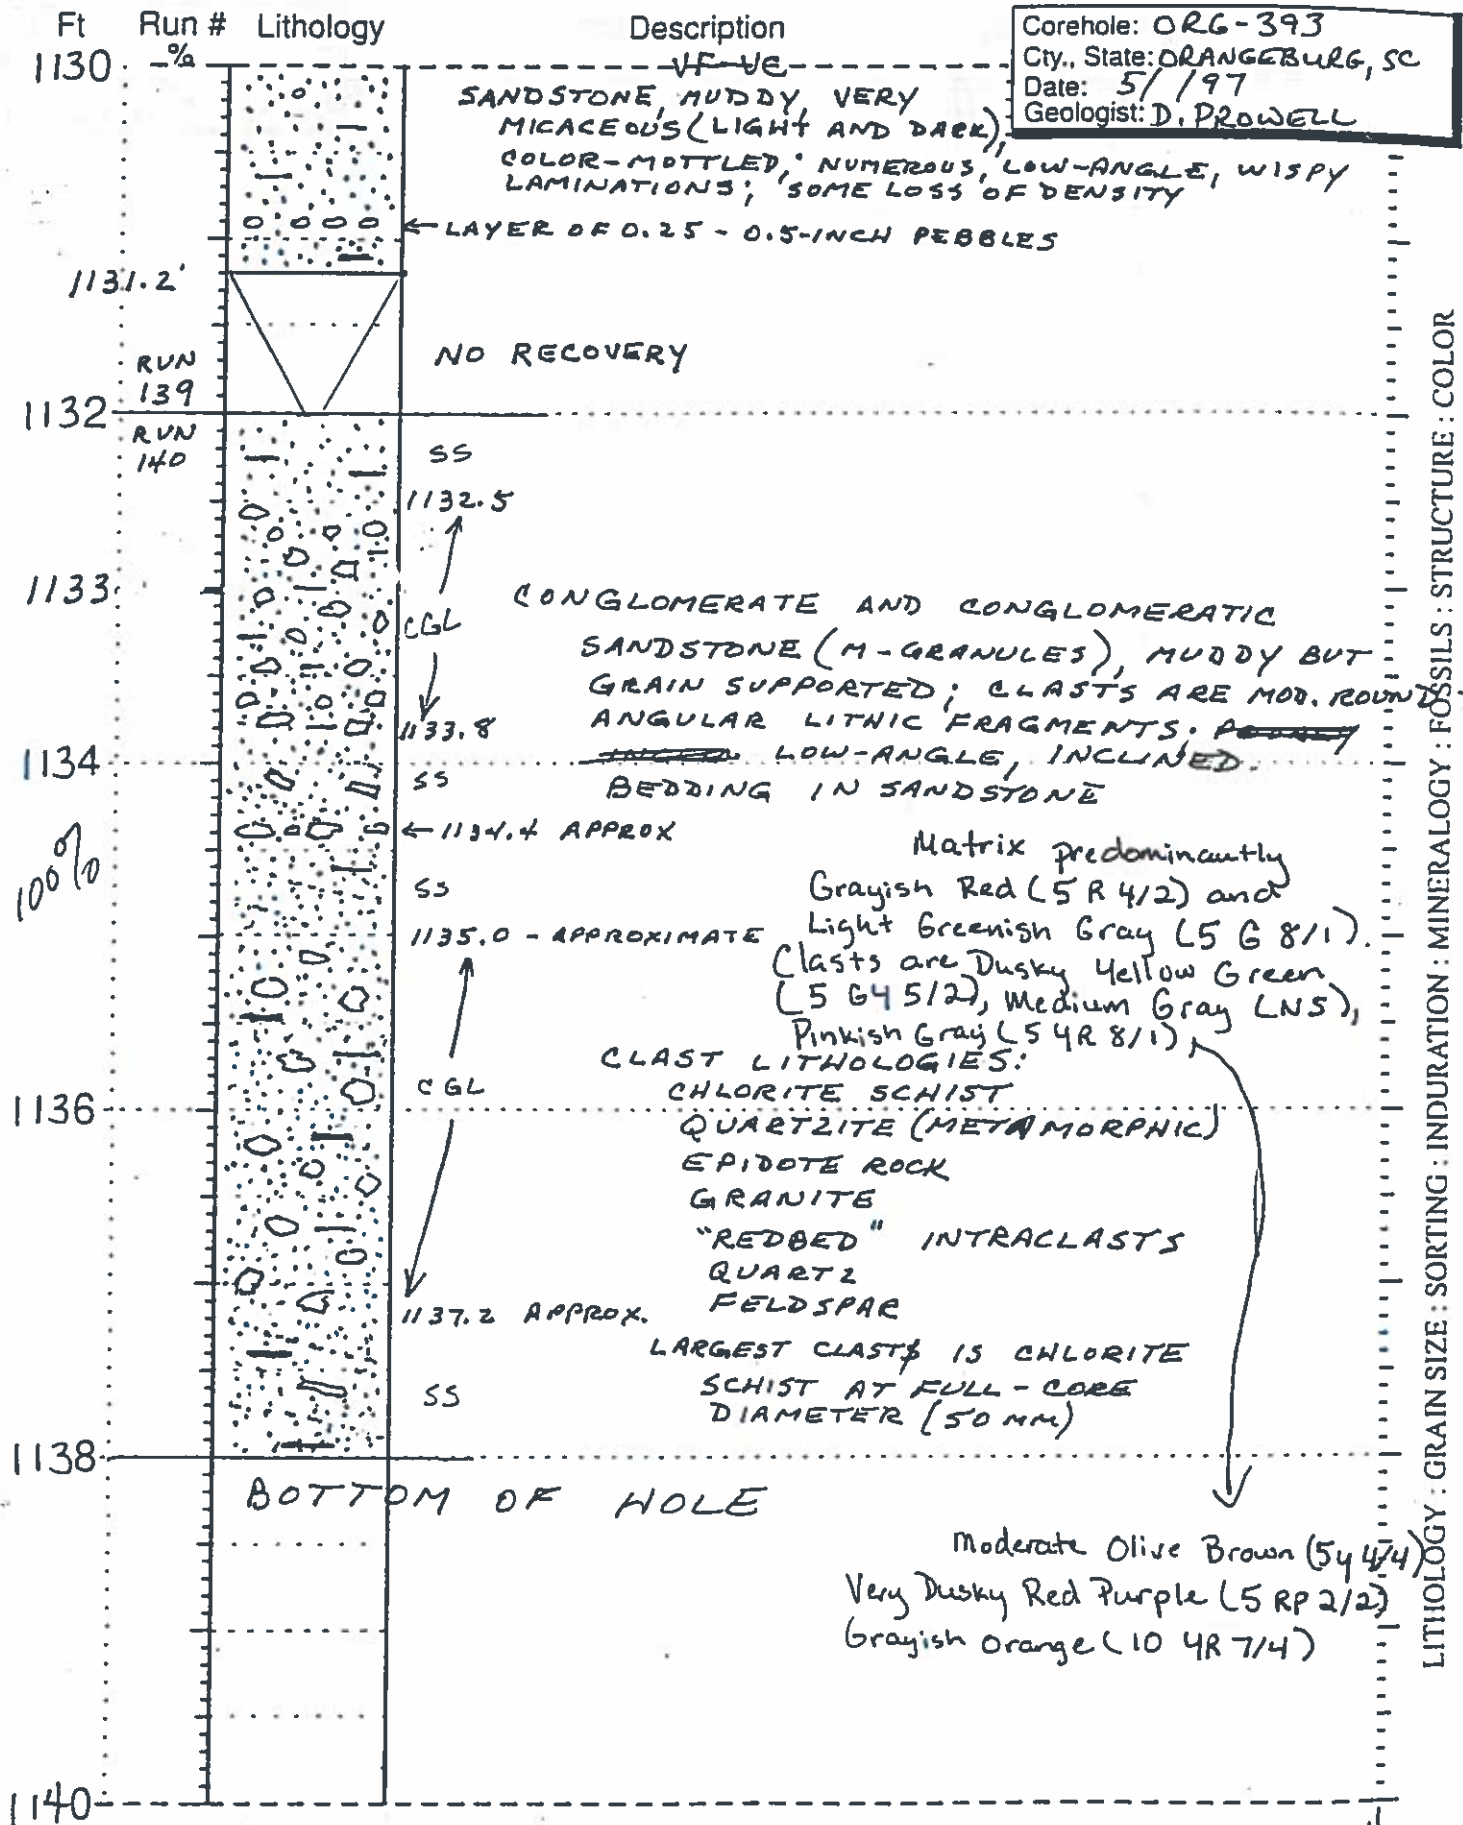 Ft Run # Lithology Description
-%
Corehole: ORG-393
Cty., State: ORANGEBURG, SC
Date: 5/ /97
Geologist: D. PROWELL
1130
VF-VC
SANDSTONE, MUDDY, VERY
MICACEOUS (LIGHT AND DARK),
COLOR-MOTTLED; NUMEROUS, LOW-ANGLE, WISPY
LAMINATIONS; SOME LOSS OF DENSITY
←LAYER OF 0.25 - 0.5-INCH PEBBLES
1131.2'
NO RECOVERY
RUN
139
1132
RUN
140
SS
1132.5
1133
CGL
CONGLOMERATE AND CONGLOMERATIC
SANDSTONE (M-GRANULES), MUDDY BUT
GRAIN SUPPORTED; CLASTS ARE MOD. ROUND
1133.8
ANGULAR LITHIC FRAGMENTS.
1134
LOW-ANGLE, INCLINED
BEDDING IN SANDSTONE
SS
←1134.4 APPROX
100%
SS
Matrix predominantly
Grayish Red (5 R 4/2) and
Light Greenish Gray (5 G 8/1).
Clasts are Dusky Yellow Green
(5 GY 5/2), Medium Gray (N5),
Pinkish Gray (5 YR 8/1),
1135.0 - APPROXIMATE
CGL
1136
CLAST LITHOLOGIES:
CHLORITE SCHIST
QUARTZITE (METAMORPHIC)
EPIDOTE ROCK
GRANITE
"REDBED" INTRACLASTS
QUARTZ
FELDSPAR
1137.2 APPROX.
LARGEST CLAST IS CHLORITE
SCHIST AT FULL-CORE
DIAMETER (50 MM)
SS
1138
BOTTOM OF HOLE
Moderate Olive Brown (5y 4/4)
Very Dusky Red Purple (5 RP 2/2)
Grayish Orange (10 YR 7/4)
1140
LITHOLOGY : GRAIN SIZE : SORTING : INDURATION : MINERALOGY : FOSSILS : STRUCTURE : COLOR